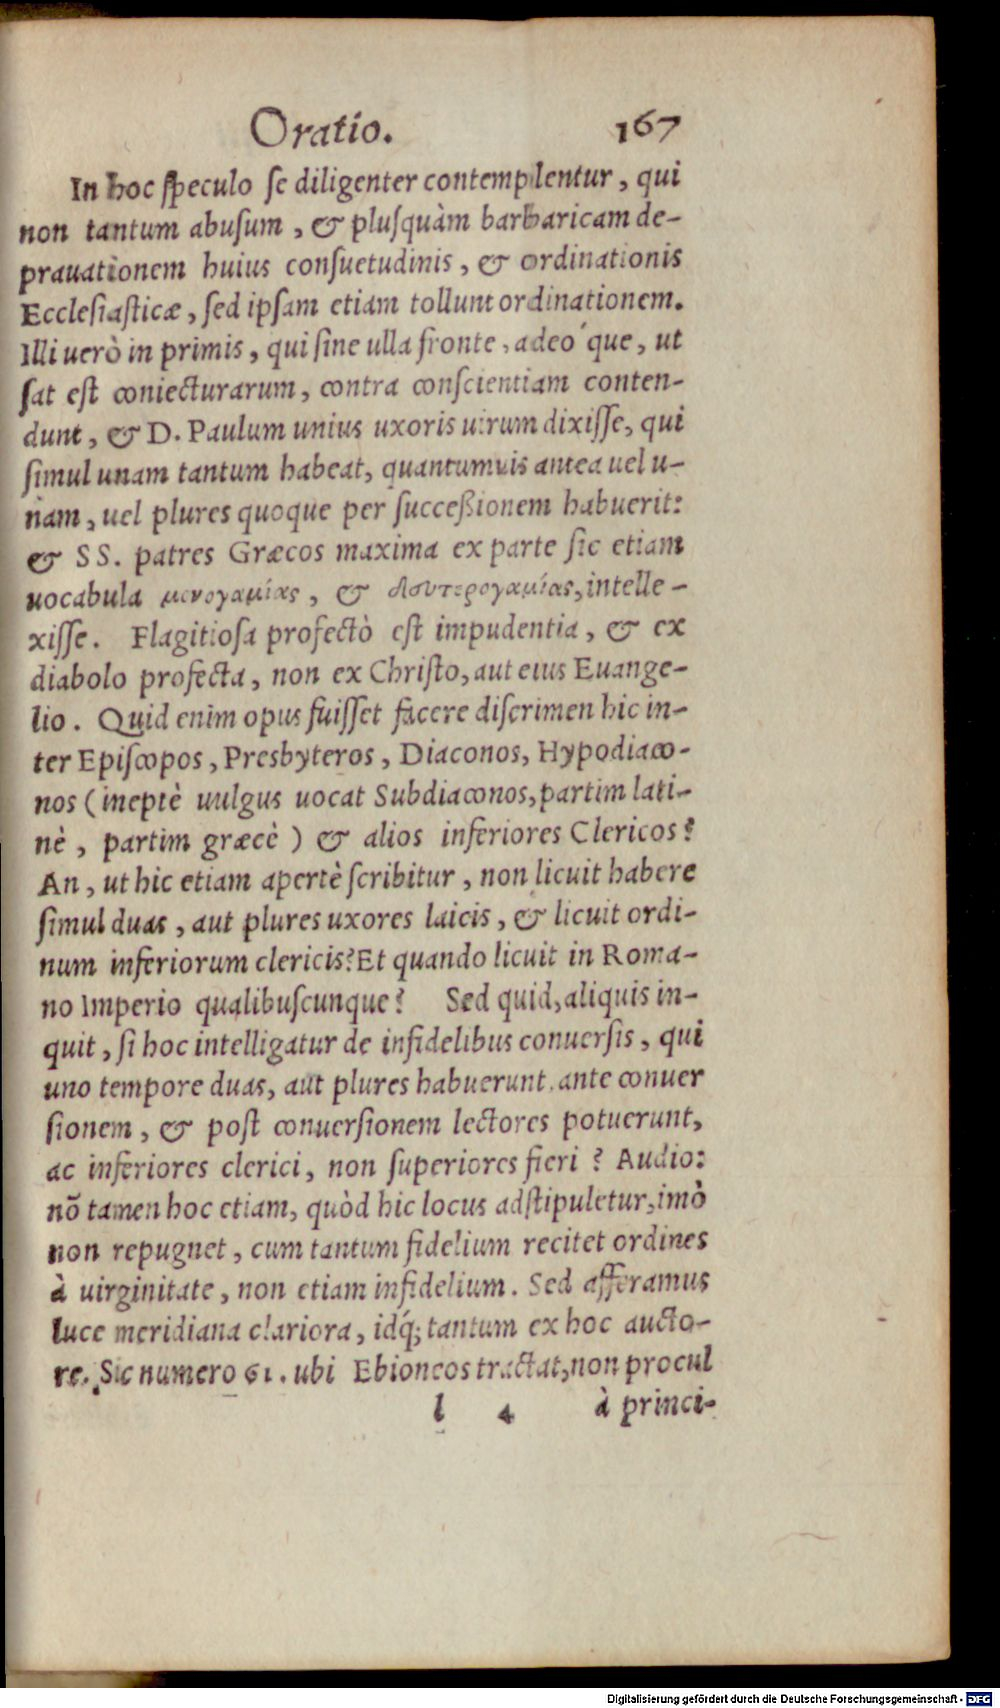 Oratio. 167
In hoc ſpeculo ſe diligenter contemplentur, qui
non tantum abuſum, & pluſquàm barbaricam de-
prauationem huius conſuetudinis, & ordinationis
Eccleſiaſticæ, ſed ipſam etiam tollunt ordinationem.
Illi uerò in primis, qui ſine ulla fronte, adeo´que, ut
ſat eſt coniecturarum, contra conſcientiam conten-
dunt, & D. Paulum unius uxoris uirum dixiſſe, qui
ſimul unam tantum habeat, quantumuis antea uel u-
nam, uel plures quoque per ſucceßionem habuerit:
& SS. patres Græcos maxima ex parte ſic etiam
uocabula μονογαμίας, & δευτερογαμίας, intelle-
xiſſe. Flagitioſa profectò eſt impudentia, & ex
diabolo profecta, non ex Chriſto, aut eius Euange-
lio. Quid enim opus fuiſſet facere diſcrimen hic in-
ter Epiſcopos, Presbyteros, Diaconos, Hypodiaco-
nos (ineptè uulgus uocat Subdiaconos, partim lati-
nè, partim græcè) & alios inferiores Clericos?
An, ut hic etiam apertè ſcribitur, non licuit habere
ſimul duas, aut plures uxores laicis, & licuit ordi-
num inferiorum clericis? Et quando licuit in Roma-
no Imperio qualibuſcunque? Sed quid, aliquis in-
quit, ſi hoc intelligatur de infidelibus conuerſis, qui
uno tempore duas, aut plures habuerunt ante conuer
ſionem, & poſt conuerſionem lectores potuerunt,
ac inferiores clerici, non ſuperiores fieri? Audio:
nõ tamen hoc etiam, quòd hic locus adſtipuletur, imò
non repugnet, cum tantum fidelium recitet ordines
à uirginitate, non etiam infidelium. Sed afferamus
luce meridiana clariora, idq́; tantum ex hoc aucto-
re. Sic numero 61. ubi Ebioneos tractat, non procul
l 4 à princi-
Digitalisierung gefördert durch die Deutsche Forschungsgemeinschaft - DFG